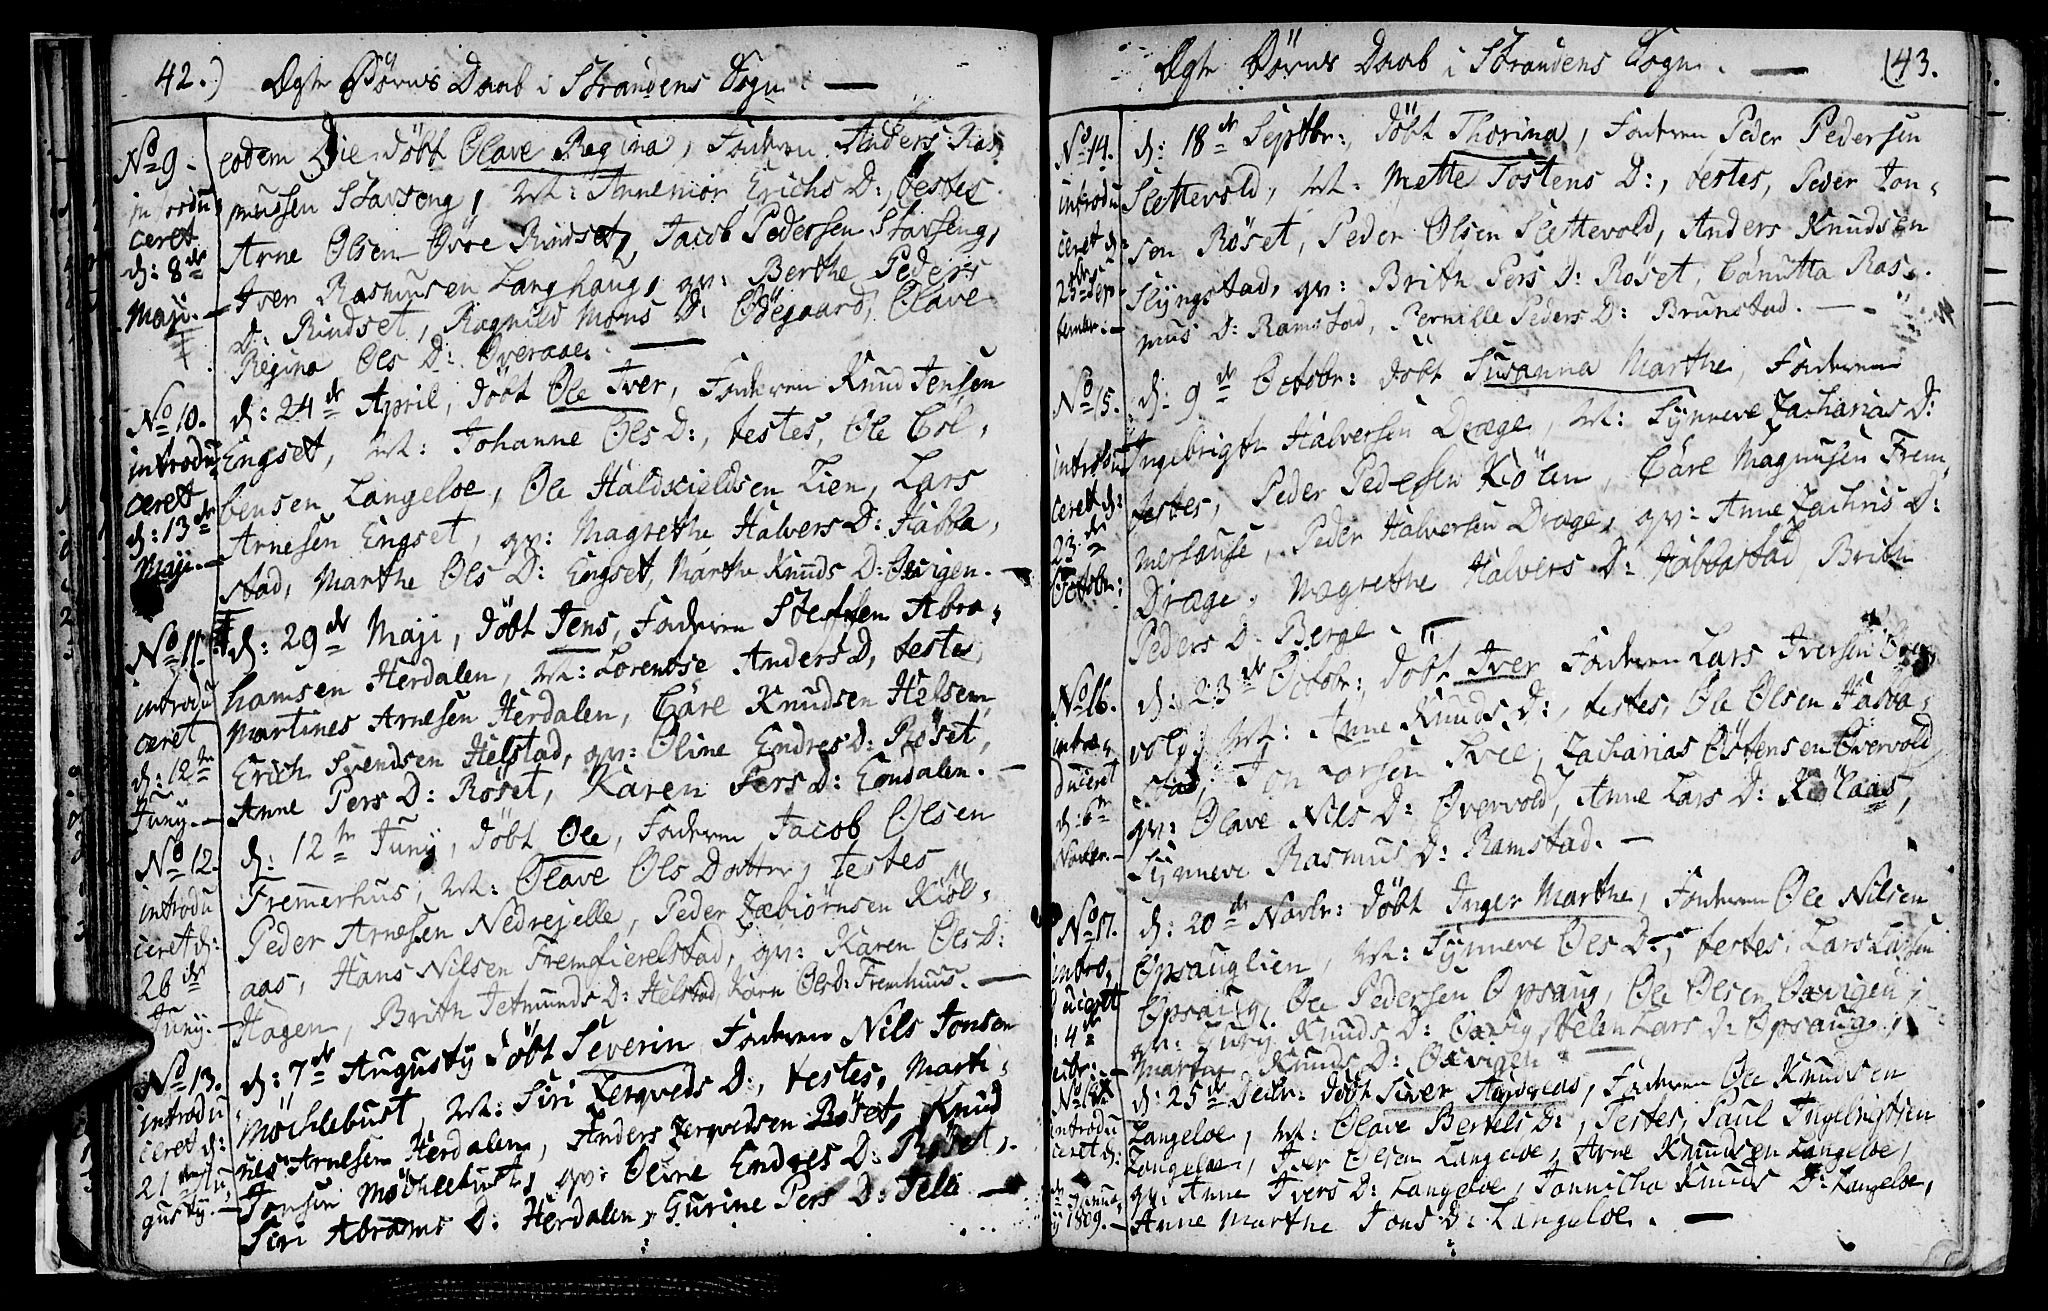 42.) Ægte Börns Daab i Strandens Sogn. —
No 9. introdu
ceret
d: 8de
Maji. —
eodem Die döbt Olave Regina, Faderen Anders Ras-
mussen Stavseng, M: Annemor Erichs D:, testes
Arne Olsen Övre Rindset, Jacob Pedersen Stavseng,
Iver Rasmusen Langhaug, qv: Berthe Peders
D: Rindset, Ragnild Mons D: Ödegaard, Olave
Regina Ols D: Overaae. —
No 10.
introdu
ceret
d: 13de
Maji. —
d: 24de April, döbt Ole Iver, Faderen Knud Jensen
Engset, M: Johanne Ols D:, testes, Ole Col-
bensen Langeloe, Ole Haldkieldsen Lien, Lars
Arnesen Engset, qv: Magrethe Halvers D: Habba-
stad, Marthe Ols D: Engset, Marthe Knuds D: Oevigen. —
No 11.
introdu
ceret
d: 12te
Juny. —
d: 29de Maji, döbt Jens, Faderen Steffen Abra-
hamsen Herdalen, M: Lorentse Anders D, testes,
Martines Arnesen Herdalen, Care Knudsen Helsem,
Erich Svendsen Helstad, qv: Oline Endres D: Röset,
Anne Pers D: Röset, Karen Pers D: Eondalen. —
No 12.
introdu
ceret d:
26de
Juny. —
d: 12te Juny, döbt Ole, Faderen Jacob Olsen
Fremerhus, M: Olave Ols Datter, testes
Peder Arnesen Nedrejelle, Peder Zæbiörnsen Kiöl-
aas, Hans Nilsen Fremfierelstad, qv: Karen Ols D:
Hagen, Brith Jetmunds D: Helstad, Karn Ols D: Fremhuus. —
No 13.
introdu
ceret d:
21de Au-
gusty. —
d: 7de Augusty döbt Severin Faderen Nils Jonsen
Möchlebust, M: Siri Zerqveds D:, testes, Marti-
nes Arnesen Herdalen, Anders Zerqvedsen Röset, Knud
Jonsen Möchlebust, qv: Oline Endres D: Röset,
Siri Abrams D: Herdalen, Gurine Pers D: Selli —
Ægte Börns Daab i Strandens Sogn. — (43.
No 14.
introdu
ceret d:
25de Sep-
tember. —
d: 18de Septbr: döbt Thorina, Faderen Peder Pedersen
Slettevold, M: Mette Tostens D:, testes, Peder Jon-
sen Röset, Peder Olsen Slettevold, Anders Knudsen
Slyngstad, qv: Brith Pers D: Röset, Canutta Ras-
mus D: Ramstad, Pernille Peders D: Brunstad. —
No 15.
introdu
ceret d:
23de
Octobr:
d: 9de Octobr: döbt Susanna Marthe, Faderen
Ingebrigth Halversen Drage, M: Synneve Zacharias D:
testes, Peder Pedersen Kiölen, Care Magnusen Frem-
mersause, Peder Halversen Drage, qv: Anne Zachris D:
Drage, Magrethe Halvers D: Habbastad Brith
Peders D: Berge. —
No 16.
intro-
duceret
d: 6te
Novbr. —
d: 23de Octobr: döbt Iver Faderen Lars Iversen Över-
vold, M: Anne Knuds D:, testes, Ole Olsen Habba-
stad, Jon Larsen Svee, Zacharias Östensen Övervold,
qv: Olave Nils D: Övervold, Anne Lars D: Kiölaas,
Synneve Rasmus D: Ramstad. —
No 17.
intro-
duceret
4de
d: 20de Novbr: döbt Inger Marthe, Faderen Ole Nilsen
Opsauglien, M: Synneve Ols D:, testes, Lars Larsen
Opsaug, Ole Pedersen Opsaug, Ole Olsen Oævigen,
qv: Gury Knuds D: Oævig, Helen Lars D: Opsaug,
Marthe Knuds D: Oævigen
No 18.
introdu
ceret d:
Janua-
ry 1809. —
d: 25de Decbr: döbt Siver Andreas, Faderen Ole Knudsen
Langeloe, M: Olave Bertels D:, Testes, Paul Ingebrigtsen
Langeloe, Iver Olsen Langeloe, Arne Knudsen Langeloe,
qv: Anne Ivers D: Langeloe, Jannicha Knuds D: Langeloe,
Anne Marthe Jons D: Langeloe. —